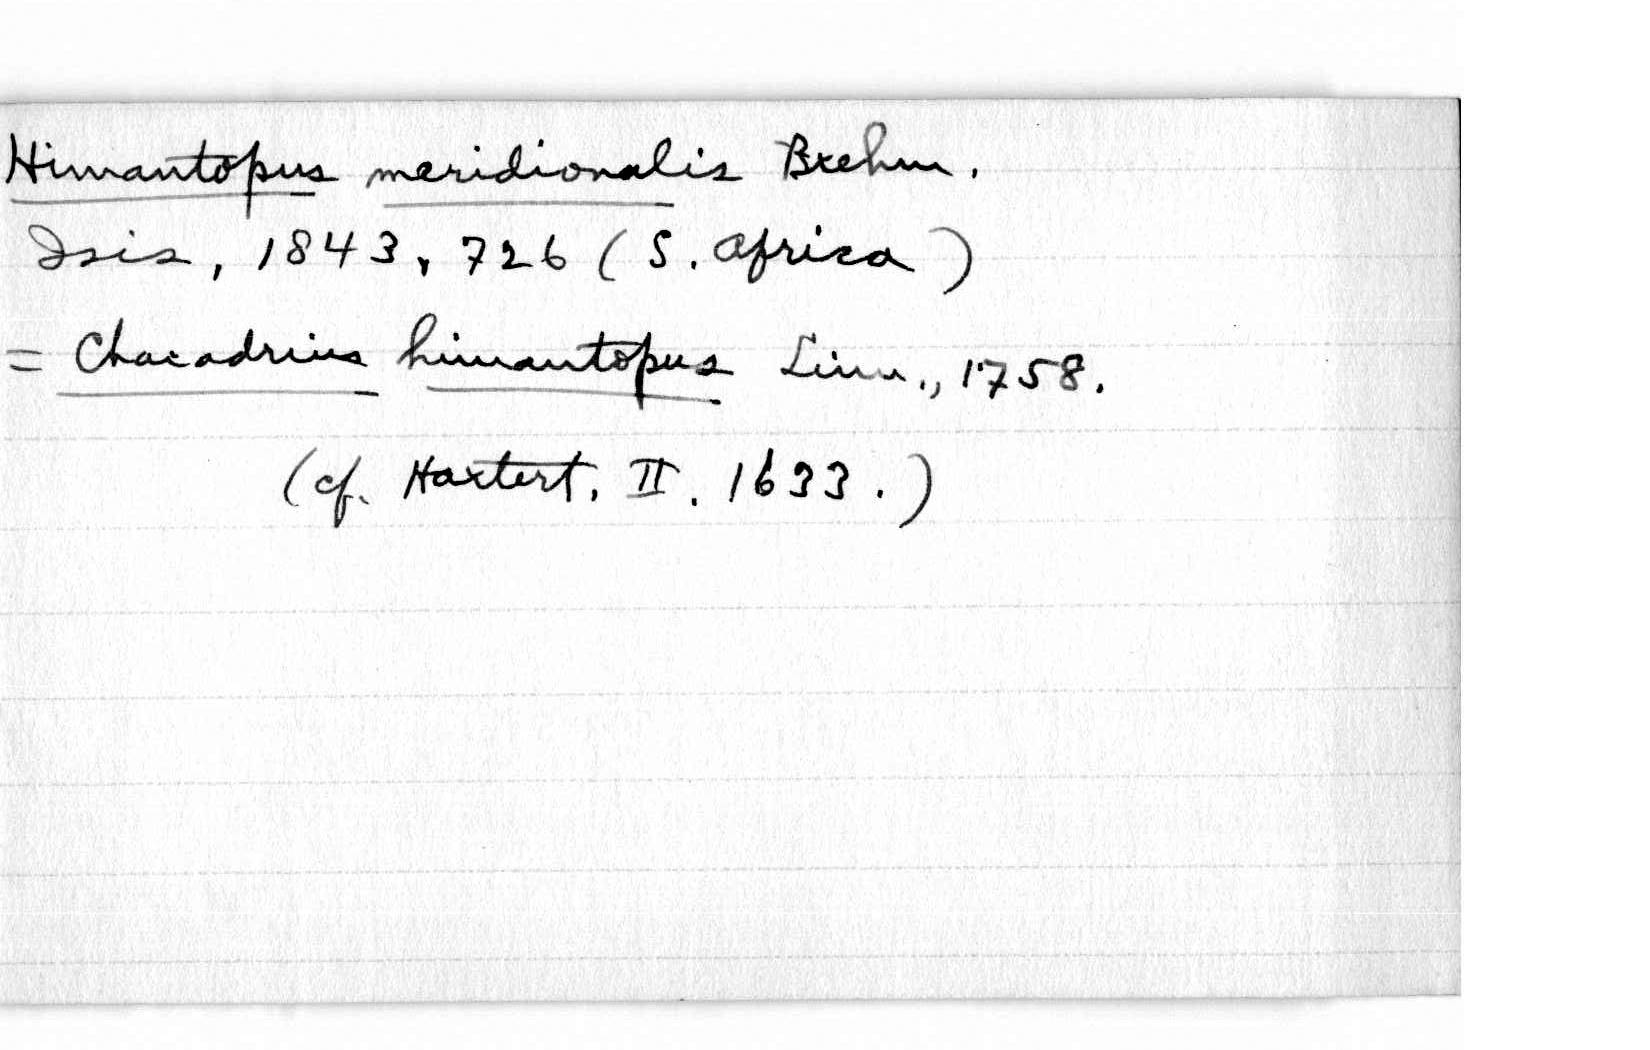 Himantopus meridionalis Brehm.
Isis, 1843, 726 (S. Africa)
= Charadrius himantopus Linn., 1758.
(cf. Hartert, II. 1633.)